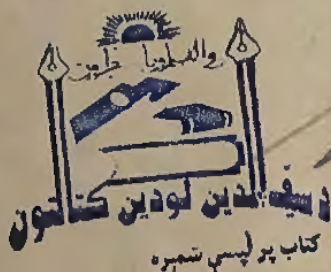 والقلم وما
د سیف الدین لودین کتابتون
کتاب پر لپسي شمېره